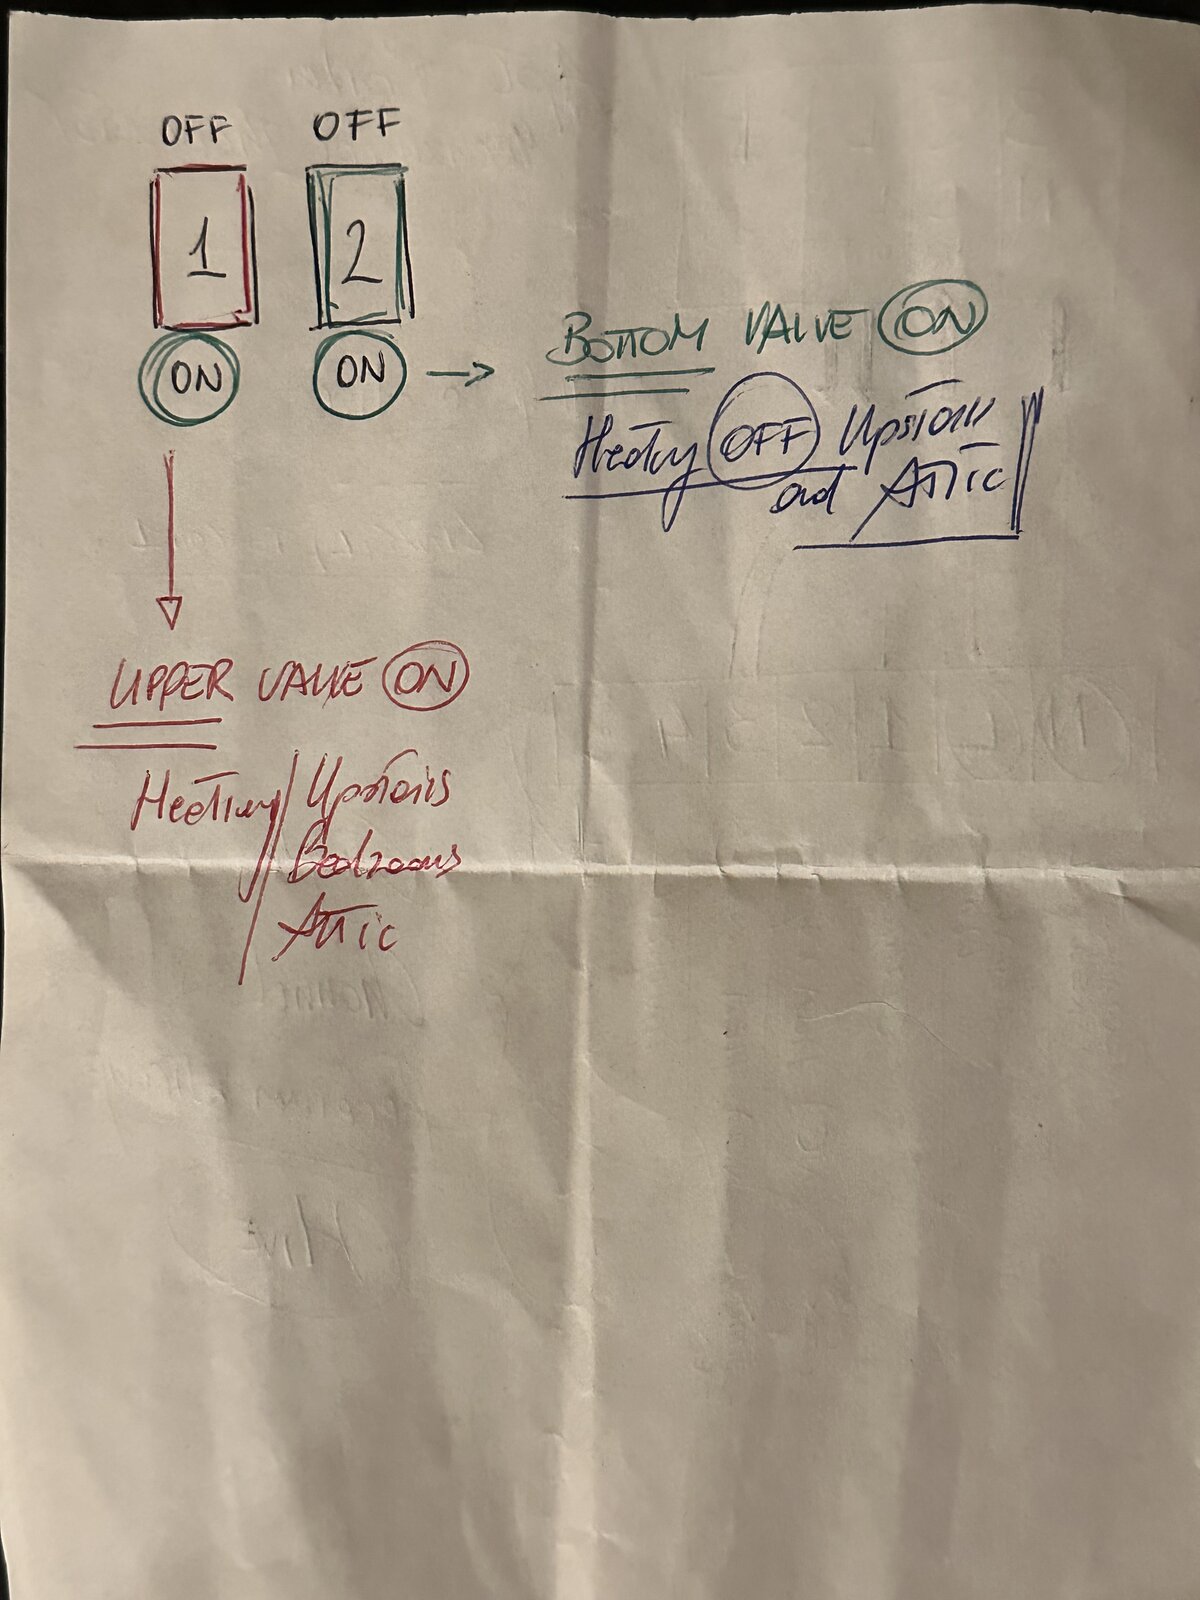 OFF OFF
1 2
ON ON →
BOTTOM VALVE ON
Heating OFF Upstairs
and Attic
UPPER VALVE ON
Heating Upstairs
Bedrooms
Attic